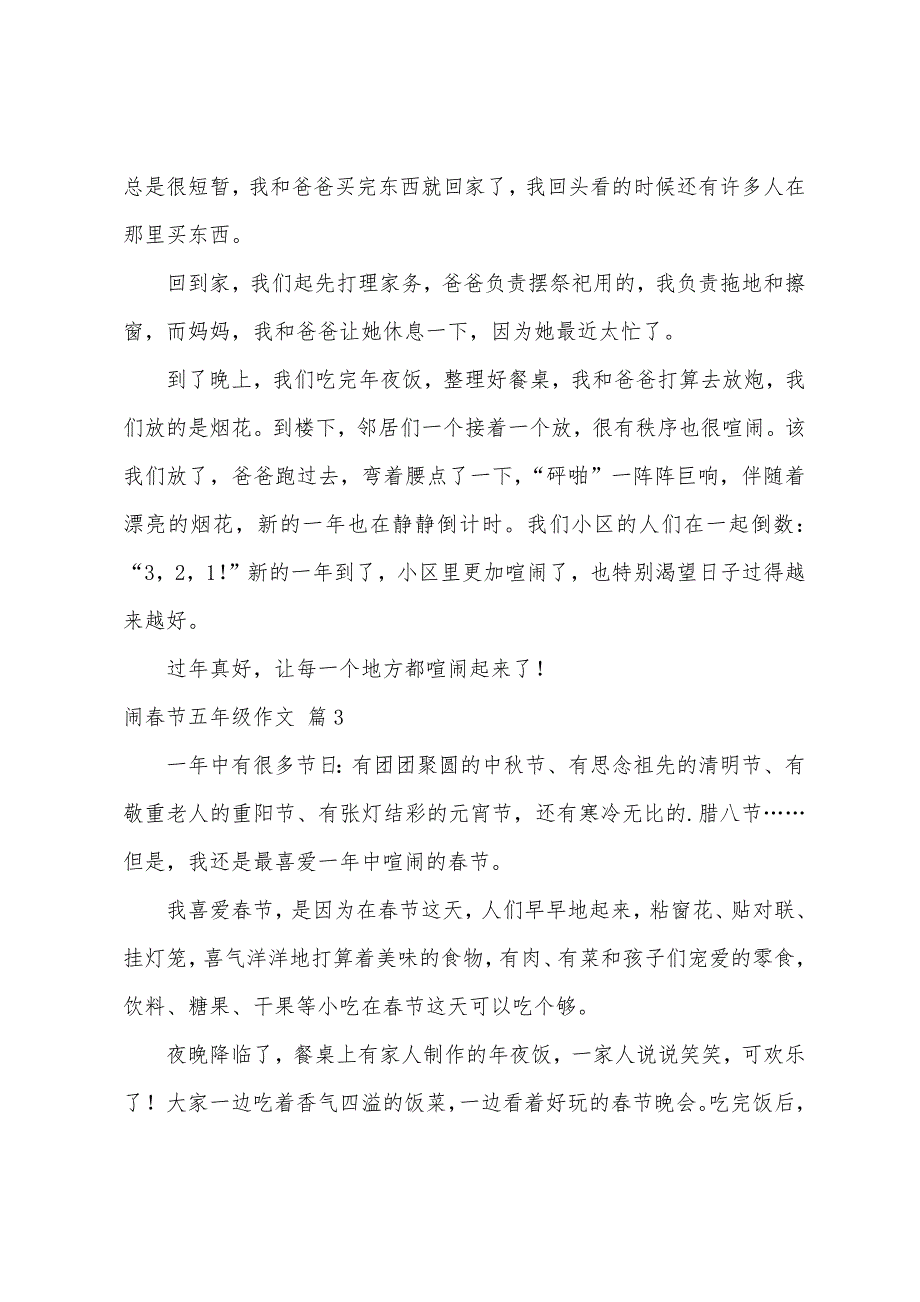 总是很短暂，我和爸爸买完东西就回家了，我回头看的时候还有许多人在
那里买东西。
回到家，我们起先打理家务，爸爸负责摆祭祀用的，我负责拖地和擦
窗，而妈妈，我和爸爸让她休息一下，因为她最近太忙了。
到了晚上，我们吃完年夜饭，整理好餐桌，我和爸爸打算去放炮，我
们放的是烟花。到楼下，邻居们一个接着一个放，很有秩序也很喧闹。该
我们放了，爸爸跑过去，弯着腰点了一下，“砰啪”一阵阵巨响，伴随着
漂亮的烟花，新的一年也在静静倒计时。我们小区的人们在一起倒数：
“3，2，1！”新的一年到了，小区里更加喧闹了，也特别渴望日子过得越
来越好。
过年真好，让每一个地方都喧闹起来了！
闹春节五年级作文 篇3
一年中有很多节日：有团团聚圆的中秋节、有思念祖先的清明节、有
敬重老人的重阳节、有张灯结彩的元宵节，还有寒冷无比的.腊八节……
但是，我还是最喜爱一年中喧闹的春节。
我喜爱春节，是因为在春节这天，人们早早地起来，粘窗花、贴对联、
挂灯笼，喜气洋洋地打算着美味的食物，有肉、有菜和孩子们宠爱的零食，
饮料、糖果、干果等小吃在春节这天可以吃个够。
夜晚降临了，餐桌上有家人制作的年夜饭，一家人说说笑笑，可欢乐
了！大家一边吃着香气四溢的饭菜，一边看着好玩的春节晚会。吃完饭后，